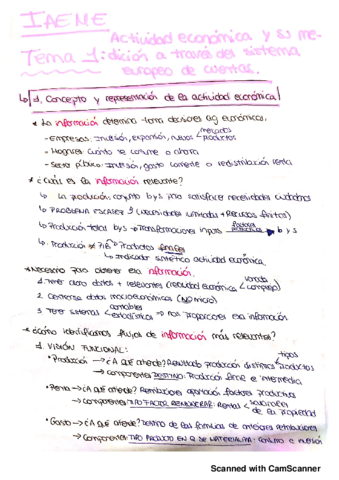 IAEME
Actividad económica y su me-
Tema 1: dición a través del sistema
europeo de cuentas.
1. Concepto y representación de la actividad económica
* La información determina toma decisiones ag económicos.
- Empresas: Inversión, expansión, nuevos mercados productos
- Hogares: cuánto se consume o ahorra
- Sector público: Inversión, gasto corriente o redistribución renta
* ¿Cuál es la información relevante?
↳ La producción: conjunto bys pra satisfacer necesidades ciudadanos
↳ PROBLEMA ESCASEZ (necesidades ilimitadas + Recursos finitos)
↳ Producción total bys → Transformaciones inputs factores productivos → b y s
↳ Producción ≠ PIB → Productos finales
↳ Indicador sintético actividad económica
* Necesario para obtener esa información.
1. Tener datos + relevantes (realidad económica variada compleja)
2. Conversa datos macroeconómicos (NO micro)
3. Tener sistemas contables estadísticos ⇒ nos proporcionen esa información
* ¿Cómo identificamos flujos de información más relevantes?
1. VISIÓN FUNCIONAL:
• Producción → ¿A qué atiende? Resultado producción distintos tipos productos
→ componentes DESTINO: Producción final e intermedia
• Renta → ¿A qué atiende? Retribuciones aportación factores productivos
→ componentes TIPO FACTOR REMUNERAR: Rentas salariales de la propiedad
• Gasto → ¿A qué atiende? Destino de las familias de anteriores retribuciones
→ Componentes: TIPO PRODUCTO EN Q SE MATERIALIZA: consumo e inversión
Scanned with CamScanner